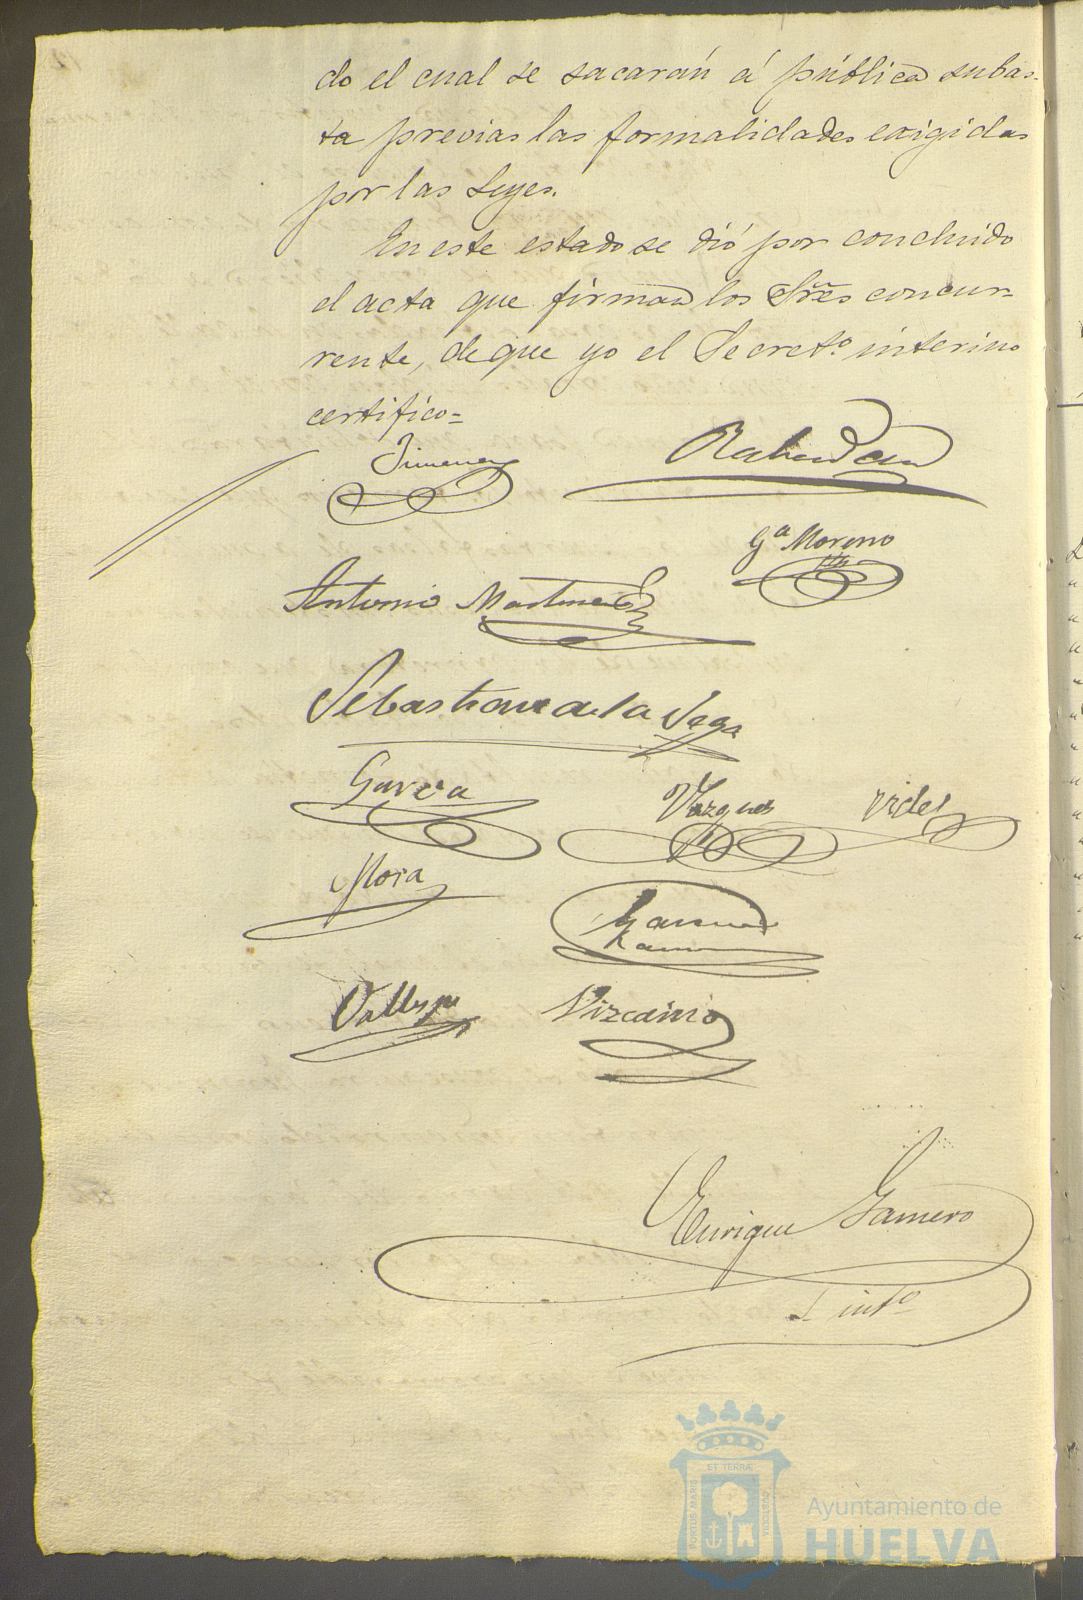 do el cual se sacarán á pública subas-
ta previas las formalidades exigidas
por las Leyes.
En este estado se dió por concluido
el acta que firman los Sres concur-
rente, de que yo el Secretº. interino
certifico=
Jimenez
Gª Moreno
Antonio Martinez
Sebastian de la Vega
Garcia
Vazquez
Videl
Mora
Vizcaino
Enrique Gamero
S intº
ET TERRA
PORTUS MARIS
CUSTODIA
Ayuntamiento de
HUELVA